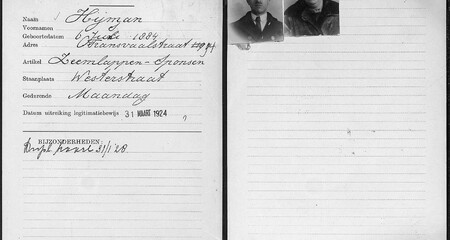 Naam Hijman
Voornamen
Geboortedatum 6 Juli 1884
Adres Transvaalstraat
Artikel Zeemlappen-Sponsen
Staanplaats Westerstraat
Gedurende Maandag
Datum uitreiking legitimatiebewijs 31 MAART 1924
BIJZONDERHEDEN:
31/1 '28